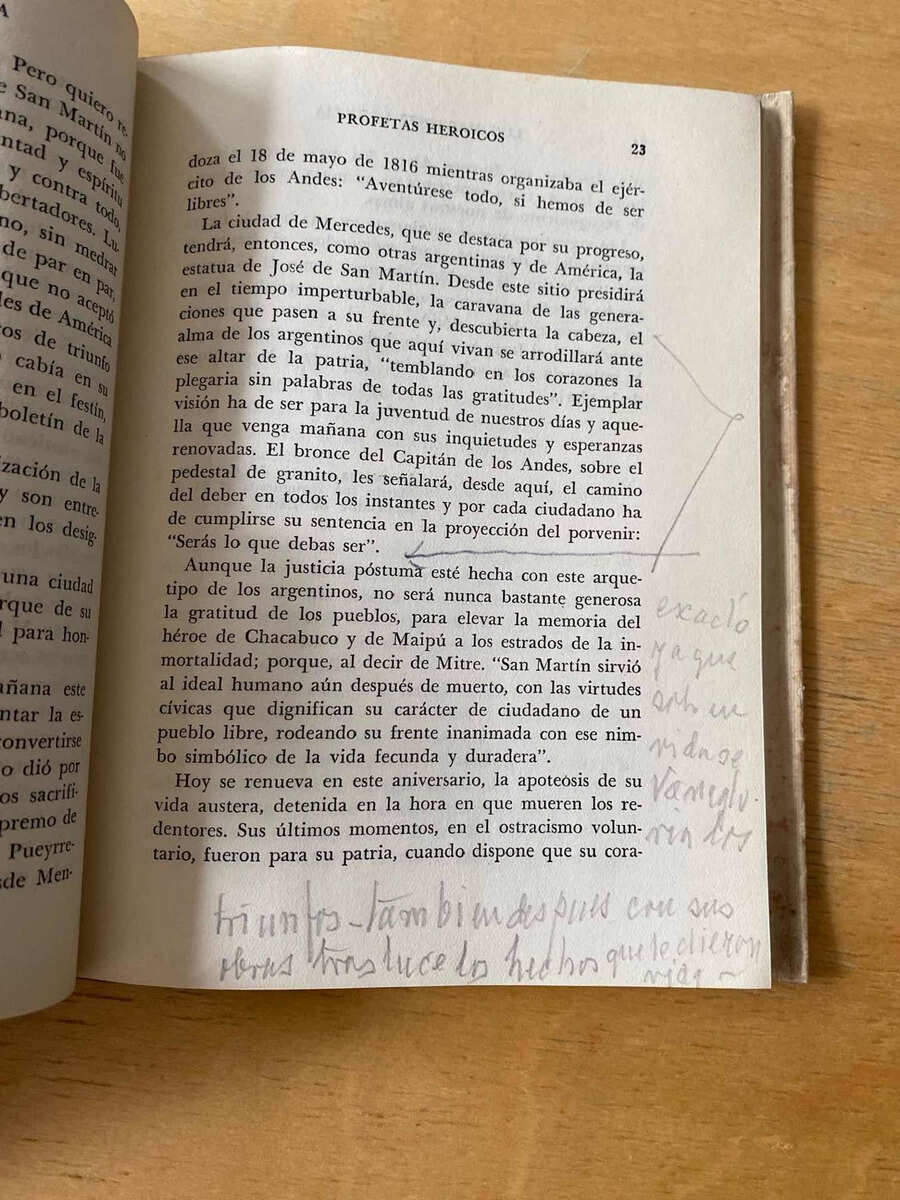 A
Pero quiero re-
e San Martín no
ana, porque fue
ntad y espíritu
y contra todo,
bertadores. Lu-
no, sin medrar
de par en par,
que no aceptó
les de América
os de triunfo
cabía en su
en el festín,
boletín de la
ización de la
y son entre-
en los desig-
una ciudad
rque de su
l para hon-
añana este
ntar la es-
convertirse
o dió por
os sacrifi-
premo de
Pueyrre-
sde Men-
PROFETAS HEROICOS 23
doza el 18 de mayo de 1816 mientras organizaba el ejér-
cito de los Andes: "Aventúrese todo, si hemos de ser
libres".
La ciudad de Mercedes, que se destaca por su progreso,
tendrá, entonces, como otras argentinas y de América, la
estatua de José de San Martín. Desde este sitio presidirá
en el tiempo imperturbable, la caravana de las genera-
ciones que pasen a su frente y, descubierta la cabeza, el
alma de los argentinos que aquí vivan se arrodillará ante
ese altar de la patria, "temblando en los corazones la
plegaria sin palabras de todas las gratitudes". Ejemplar
visión ha de ser para la juventud de nuestros días y aque-
lla que venga mañana con sus inquietudes y esperanzas
renovadas. El bronce del Capitán de los Andes, sobre el
pedestal de granito, les señalará, desde aquí, el camino
del deber en todos los instantes y por cada ciudadano ha
de cumplirse su sentencia en la proyección del porvenir:
"Serás lo que debas ser".
Aunque la justicia póstuma esté hecha con este arque-
tipo de los argentinos, no será nunca bastante generosa
la gratitud de los pueblos, para elevar la memoria del
héroe de Chacabuco y de Maipú a los estrados de la in-
mortalidad; porque, al decir de Mitre. "San Martín sirvió
al ideal humano aún después de muerto, con las virtudes
cívicas que dignifican su carácter de ciudadano de un
pueblo libre, rodeando su frente inanimada con ese nim-
bo simbólico de la vida fecunda y duradera".
Hoy se renueva en este aniversario, la apoteosis de su
vida austera, detenida en la hora en que mueren los re-
dentores. Sus últimos momentos, en el ostracismo volun-
tario, fueron para su patria, cuando dispone que su cora-
exacto
ya que
solo en
vida se
vanaglo-
rian los
triunfos - tambien despues con sus
obras trasluce los hechos que le dieron
vida